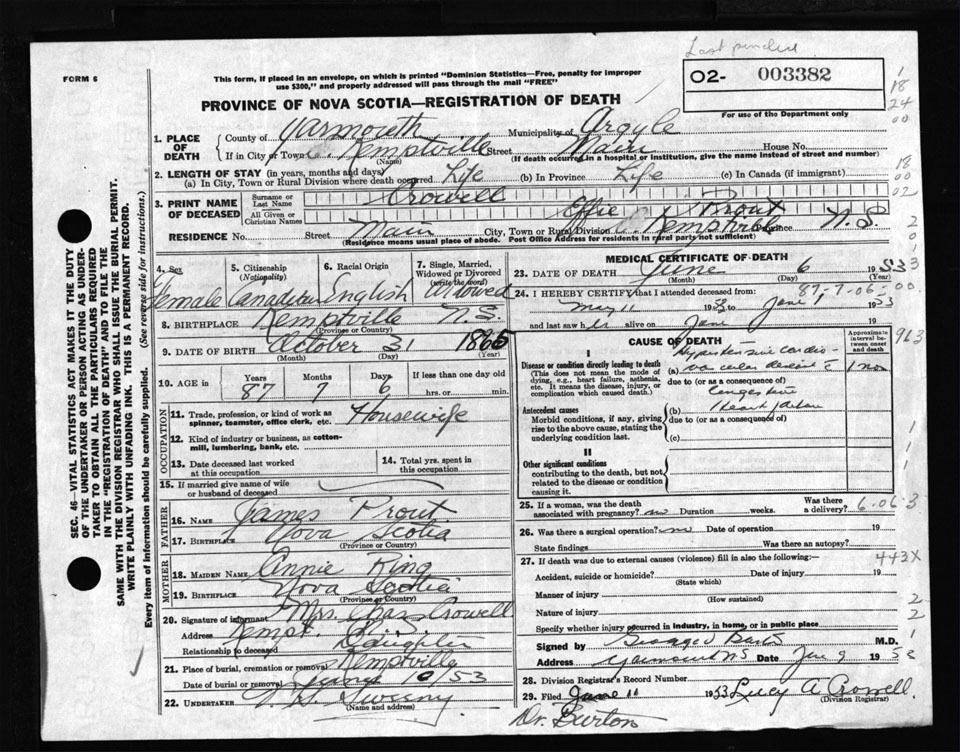 Last pencilled
FORM 6
This form, if placed in an envelope, on which is printed "Dominion Statistics—Free, penalty for improper
use $300," and properly addressed will pass through the mail "FREE"
O2- 003382
For use of the Department only
1
18
24
00
PROVINCE OF NOVA SCOTIA—REGISTRATION OF DEATH
1. PLACE OF DEATH County of Yarmouth Municipality of Argyle
If in City or Town Kemptville Street Main House No.
(Name) (If death occurred in a hospital or institution, give the name instead of street and number)
2. LENGTH OF STAY (in years, months and days)
(a) In City, Town or Rural Division where death occurred Life (b) In Province Life (c) In Canada (if immigrant)
18
00
02
3. PRINT NAME OF DECEASED Surname or Last Name Crowell
All Given or Christian Names Effie Prout
RESIDENCE No. Street Main City, Town or Rural Division Kemptville Province N.S.
(Residence means usual place of abode. Post Office Address for residents in rural parts not sufficient)
2
0
4. Sex Female
5. Citizenship (Nationality) Canadian
6. Racial Origin English
7. Single, Married, Widowed or Divorced (write the word) Widowed
8. BIRTHPLACE Kemptville N.S.
(Province or Country)
9. DATE OF BIRTH October 31 1865
(Month) (Day) (Year)
10. AGE in Years Months Days If less than one day old
87 7 6 hrs. or min.
OCCUPATION
11. Trade, profession, or kind of work as
spinner, teamster, office clerk, etc. Housewife
12. Kind of industry or business, as cotton-
mill, lumbering, bank, etc.
13. Date deceased last worked
at this occupation
14. Total yrs. spent in
this occupation
15. If married give name of wife
or husband of deceased
FATHER
16. NAME James Prout
17. BIRTHPLACE Nova Scotia
(Province or Country)
MOTHER
18. MAIDEN NAME Annie King
19. BIRTHPLACE Nova Scotia
(Province or Country)
20. Signature of informant Mrs. Chas Crowell
Address Kempt.
Relationship to deceased Daughter
21. Place of burial, cremation or removal Kemptville
Date of burial or removal June 10/53
22. UNDERTAKER V. H. Sweeny
(Name and address)
MEDICAL CERTIFICATE OF DEATH
23. DATE OF DEATH June 6 1953
(Month) (Day)
24. I HEREBY CERTIFY that I attended deceased from: 87-7-06-00
May 11 1953 to June 1 1953
and last saw her alive on June 19
CAUSE OF DEATH
Approximate interval between onset and death
963
I
Disease or condition directly leading to death
(This does not mean the mode of
dying, e.g., heart failure, asthenia,
etc. It means the disease, injury, or
complication which caused death.)
(a) Hypertensive cardio-
vascular disease c 1 mo
due to (or as a consequence of)
Congestive
Antecedent causes
Morbid conditions, if any, giving
rise to the above cause, stating the
underlying condition last.
(b) Heart failure
due to (or as a consequence of)
(c)
II
Other significant conditions
contributing to the death, but not
related to the disease or condition
causing it.
1
1
1
25. If a woman, was the death
associated with pregnancy? no Duration weeks. Was there a delivery? 6-06 3
26. Was there a surgical operation? no Date of operation 19
State findings Was there an autopsy?
27. If death was due to external causes (violence) fill in also the following:— 443X
Accident, suicide or homicide? Date of injury 19
(State which)
Manner of injury
(How sustained)
2
Nature of injury
2
Specify whether injury occurred in industry, in home, or in public place
Signed by M.D. 1
Address Yarmouth NS Date Jun 9 1953 2
28. Division Registrar's Record Number
29. Filed June 11 1953 Lucy A Crowell
(Division Registrar)
Dr. Burton
SEC. 46—VITAL STATISTICS ACT MAKES IT THE DUTY
OF THE UNDERTAKER OR PERSON ACTING AS UNDER-
TAKER TO OBTAIN ALL THE PARTICULARS REQUIRED
IN THE "REGISTRATION OF DEATH" AND TO FILE THE
SAME WITH THE DIVISION REGISTRAR WHO SHALL ISSUE THE BURIAL PERMIT.
WRITE PLAINLY WITH UNFADING INK. THIS IS A PERMANENT RECORD.
Every item of information should be carefully supplied. (See reverse side for instructions.)